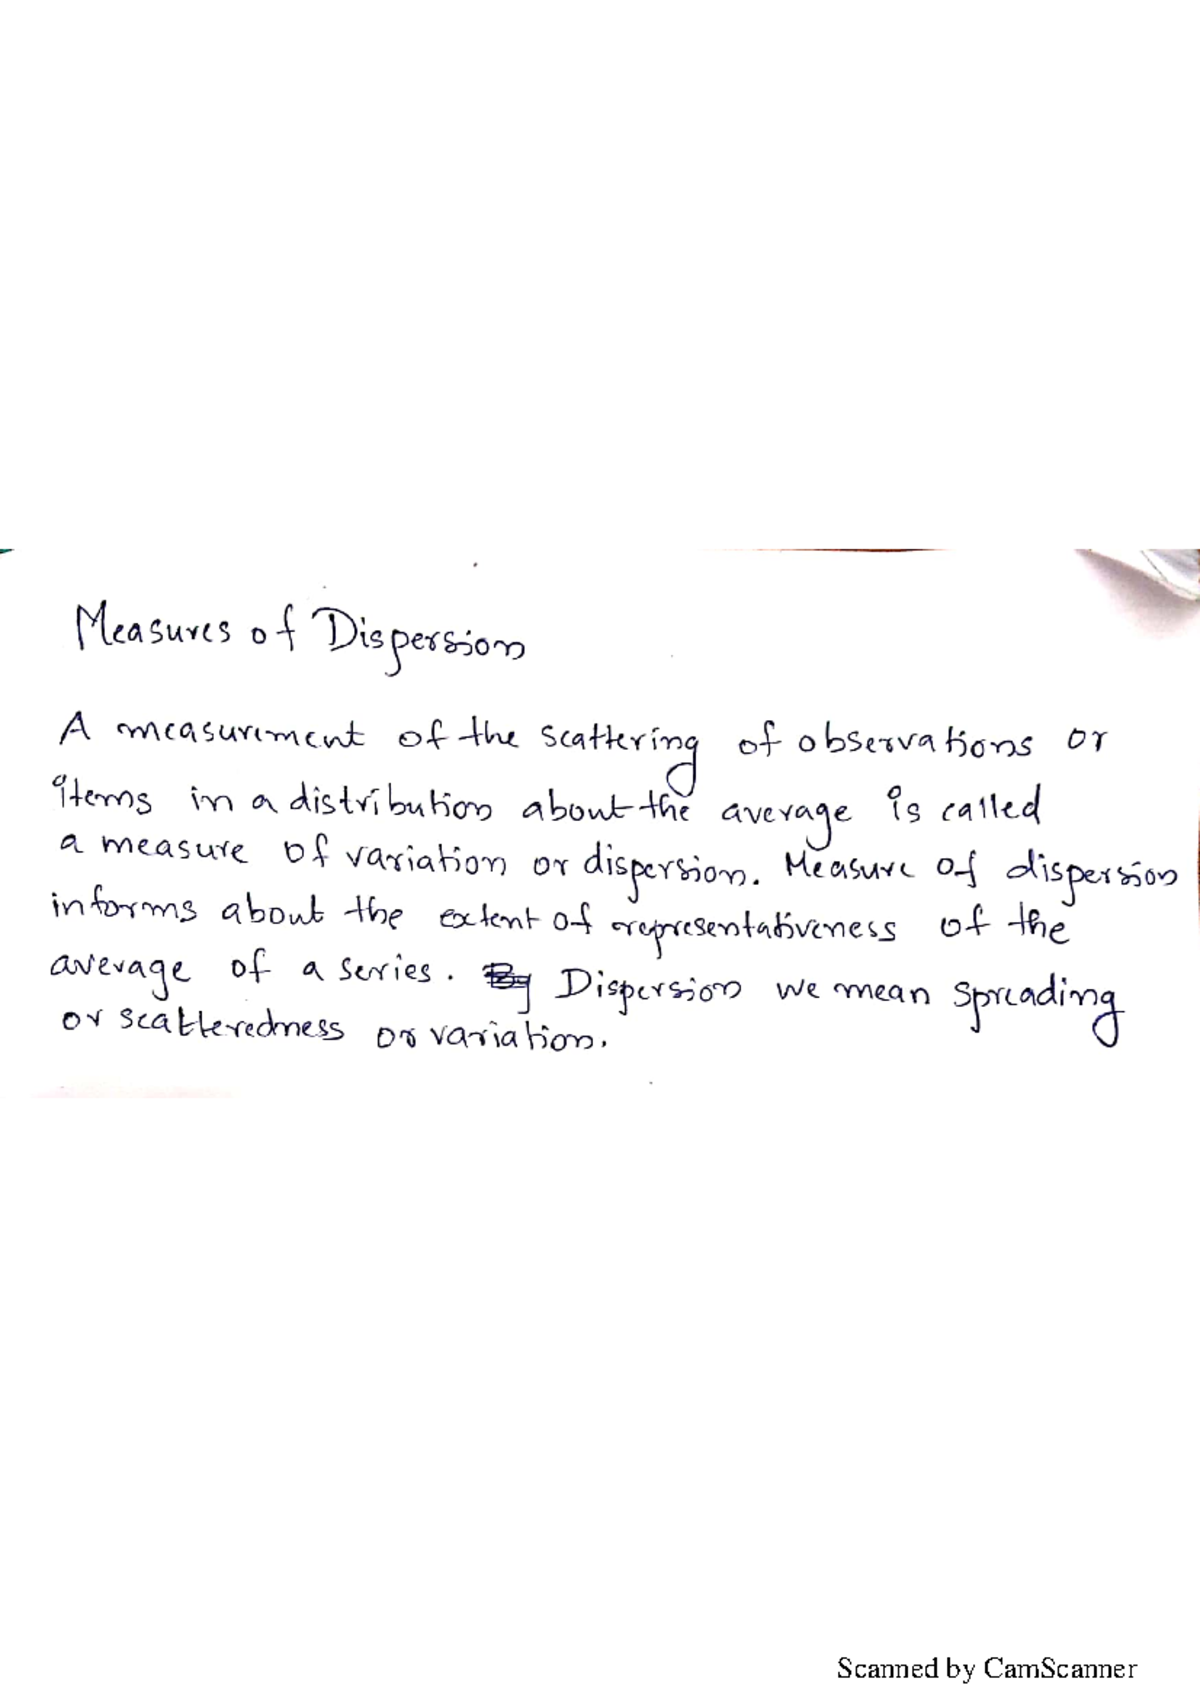 Measures of Dispersion
A measurement of the scattering of observations or
items in a distribution about the average is called
a measure of variation or dispersion. Measure of dispersion
informs about the extent of representativeness of the
average of a series. By Dispersion we mean spreading
or scatteredness or variation.
Scanned by CamScanner